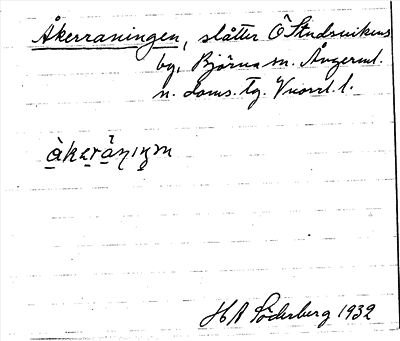 Åkerraningen, slåtter Ö Studsvikens
by, Björna sn. Ångerml.
n. doms. Tg.
åkerånıŋɛn
H A Söderberg 1932